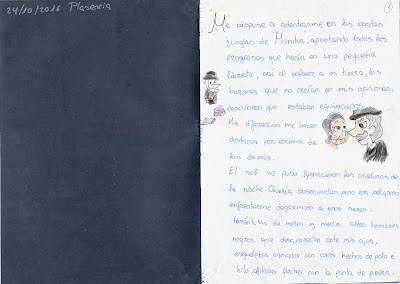 24/10/2016 Plasencia
1
Me dispuse a adentrarme en las bastas
junglas de "Mondor", apuntando todos los
progresos que hacía en una pequeña
libreta, así al volver a mi tierra, los
barones que no creían en mis opiniones,
descubran que estaban equivocados.
Mis diferencias me hacen
destacar por encima de
los demás.
El sol se puso. Aparecieron las criaturas de
la noche. Quería observarlas pero era peligroso
enfrentarme desarmado a esos seres:
tarántulas de metro y medio, altos hombres
negros que desaparecían ante mis ojos,
esqueletos armados con arcos hechos de palo e
hilo, afiladas flechas con la punta de piedra.